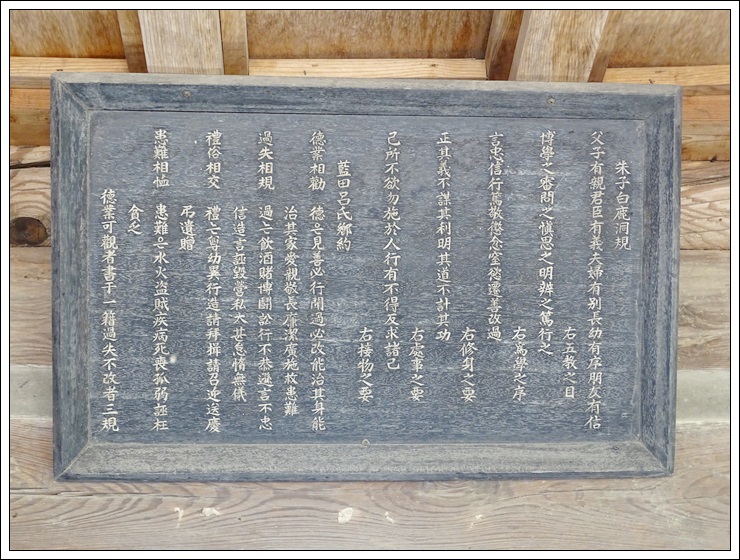 朱子白鹿洞規
父子有親君臣有義夫婦有別長幼有序朋友有信
右五教之目
博學之審問之慎思之明辨之篤行之
右爲學之序
言忠信行篤敬懲忿窒慾遷善改過
右修身之要
正其義不謀其利明其道不計其功
右處事之要
己所不欲勿施於人行有不得反求諸己
右接物之要
藍田呂氏鄕約
德業相勸 德은見善必行聞過必改能治其身能
治其家愛親敬長廉潔廣施救患難
過失相規 過는飮酒賭博鬪訟行不恭遜言不忠
信造言誣毁營私太甚怠惰無儀
禮俗相交 禮는尊幼異行造請拜揖請召迎送慶
弔遺贈
患難相恤 患難은水火盜賊疾病死喪孤弱誣枉
貧乏
德業可觀者書于一籍過失不改者三規